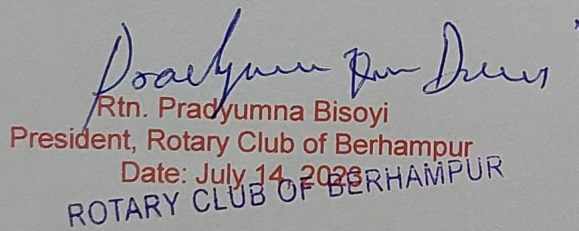 Rtn. Pradyumna Bisoyi
President, Rotary Club of Berhampur
Date: July 14, 2023
ROTARY CLUB OF BERHAMPUR